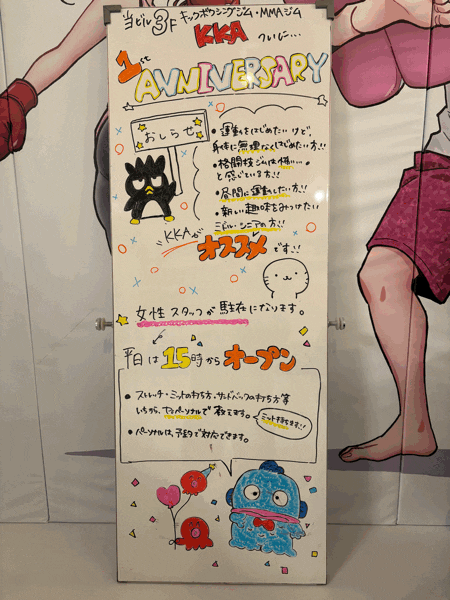 当ビル3F キックボクシングジム・MMAジム
KKA ついに…
1st
ANNIVERSARY
おしらせ
・運動をはじめたいけど、
身体に無理なくはじめたい方!!
・格闘技ジムは怖い…。
と感じている方!!
・昼間に運動したい方!!
・新しい趣味をみつけたい
ミドル・シニアの方!!
KKAが
オススメです!!
女性スタッフが駐在になります。
平日は15時からオープン
・ストレッチ・ミットの打ち方・サンドバックの打ち方等
いちから、プチパーソナルで教えます。
ミット持ちます!!
・パーソナルは、予約で対応できます。